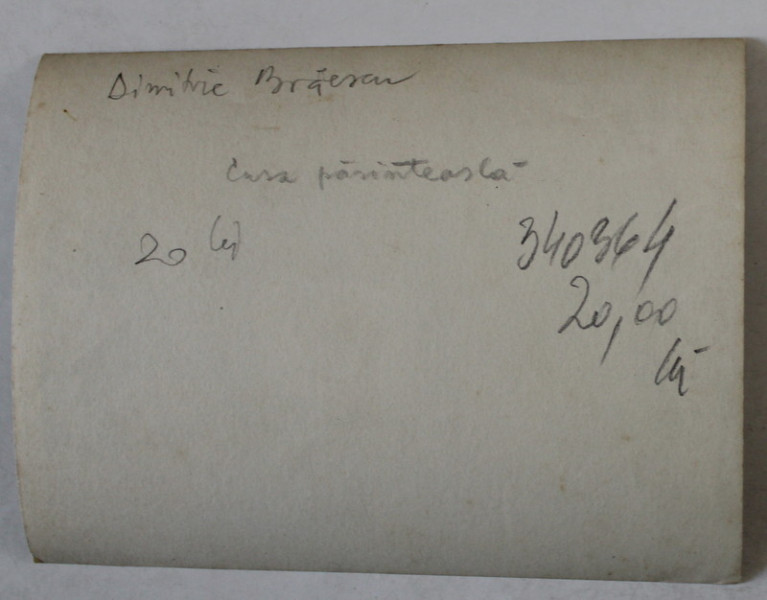 Dimitrie Brăescu
Casa părintească
20 lei
340364
20,00
lei